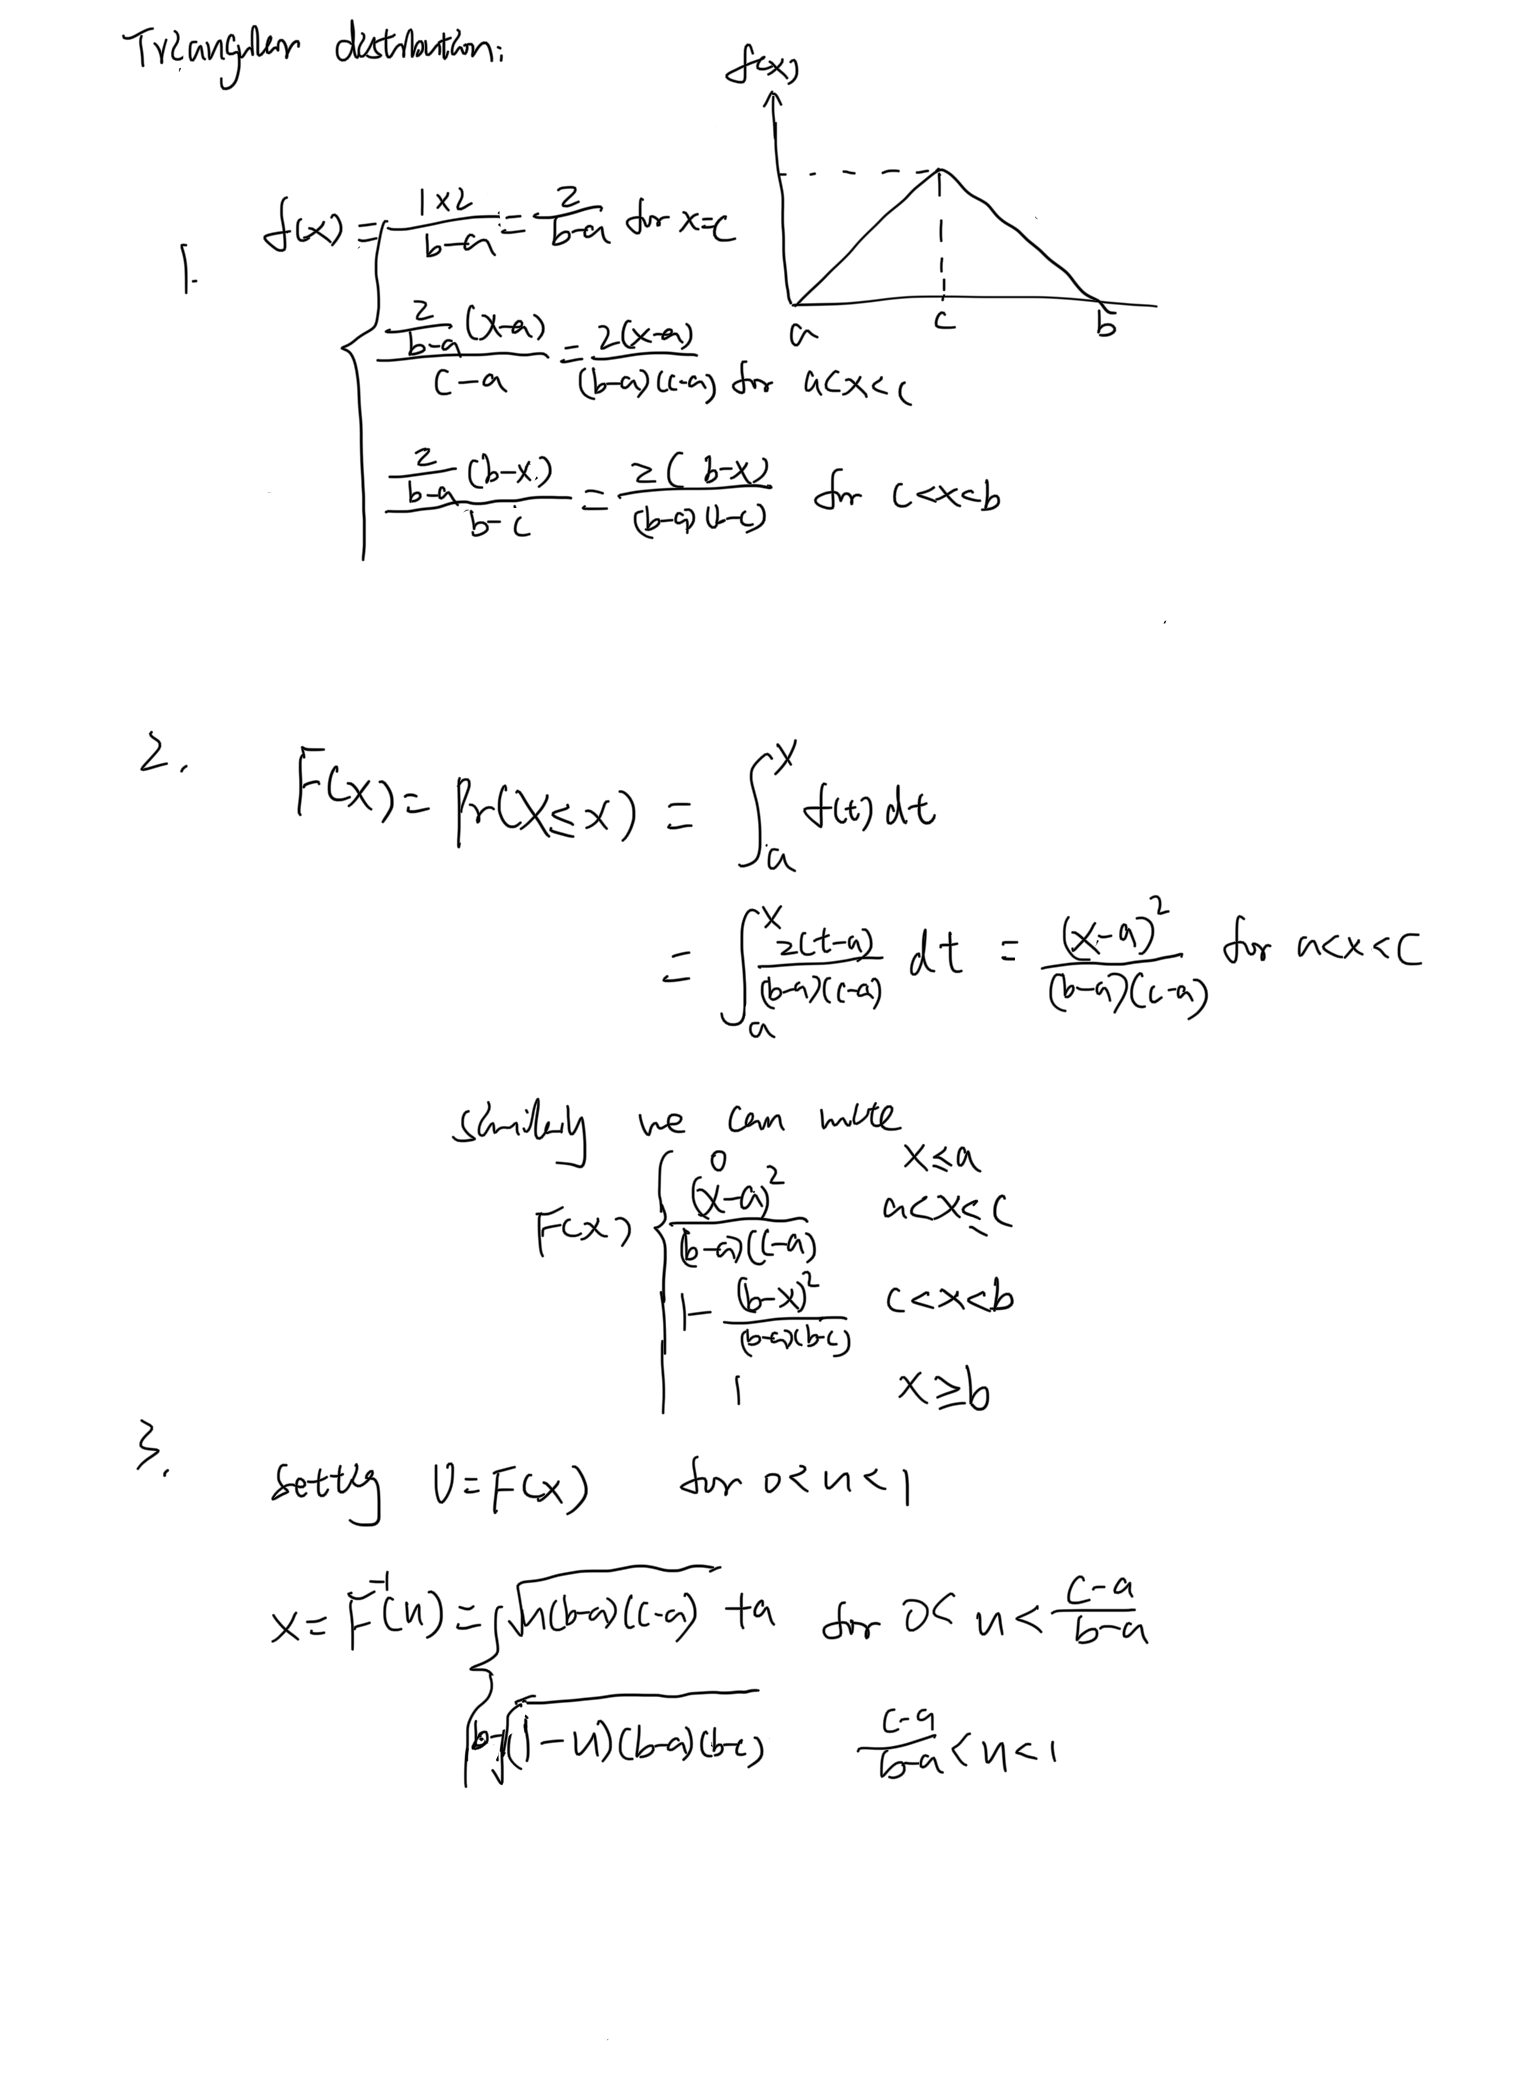 Triangular distribution:
f(x)
1. f(x) = { 1×2/(b-a) = 2/(b-a) for x=c
(2/(b-a) (x-a))/(c-a) = 2(x-a)/((b-a)(c-a)) for a<x<c
(2/(b-a) (b-x))/(b-c) = 2(b-x)/((b-a)(b-c)) for c<x<b
a c b
2. F(x) = Pr(X≤x) = ∫_a^x f(t) dt
= ∫_a^x 2(t-a)/((b-a)(c-a)) dt = (x-a)²/((b-a)(c-a)) for a<x<c
similarly we can write
F(x) { 0 x≤a
(x-a)²/((b-a)(c-a)) a<x≤c
1 - (b-x)²/((b-a)(b-c)) c<x<b
1 x≥b
3. setting U=F(x) for 0<u<1
x = F⁻¹(u) = { √(u(b-a)(c-a)) + a for 0< u < (c-a)/(b-a)
b-√((1-u)(b-a)(b-c)) (c-a)/(b-a) <u<1